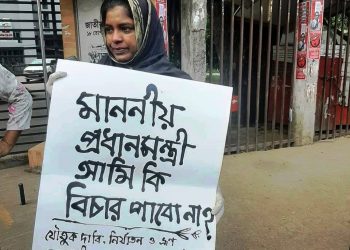 মাননীয়
প্রধানমন্ত্রী
আমি কি
বিচার পাবো না?
যৌতুক দাবি, নির্যাতন ও ভ্রূণ
জাতীয়